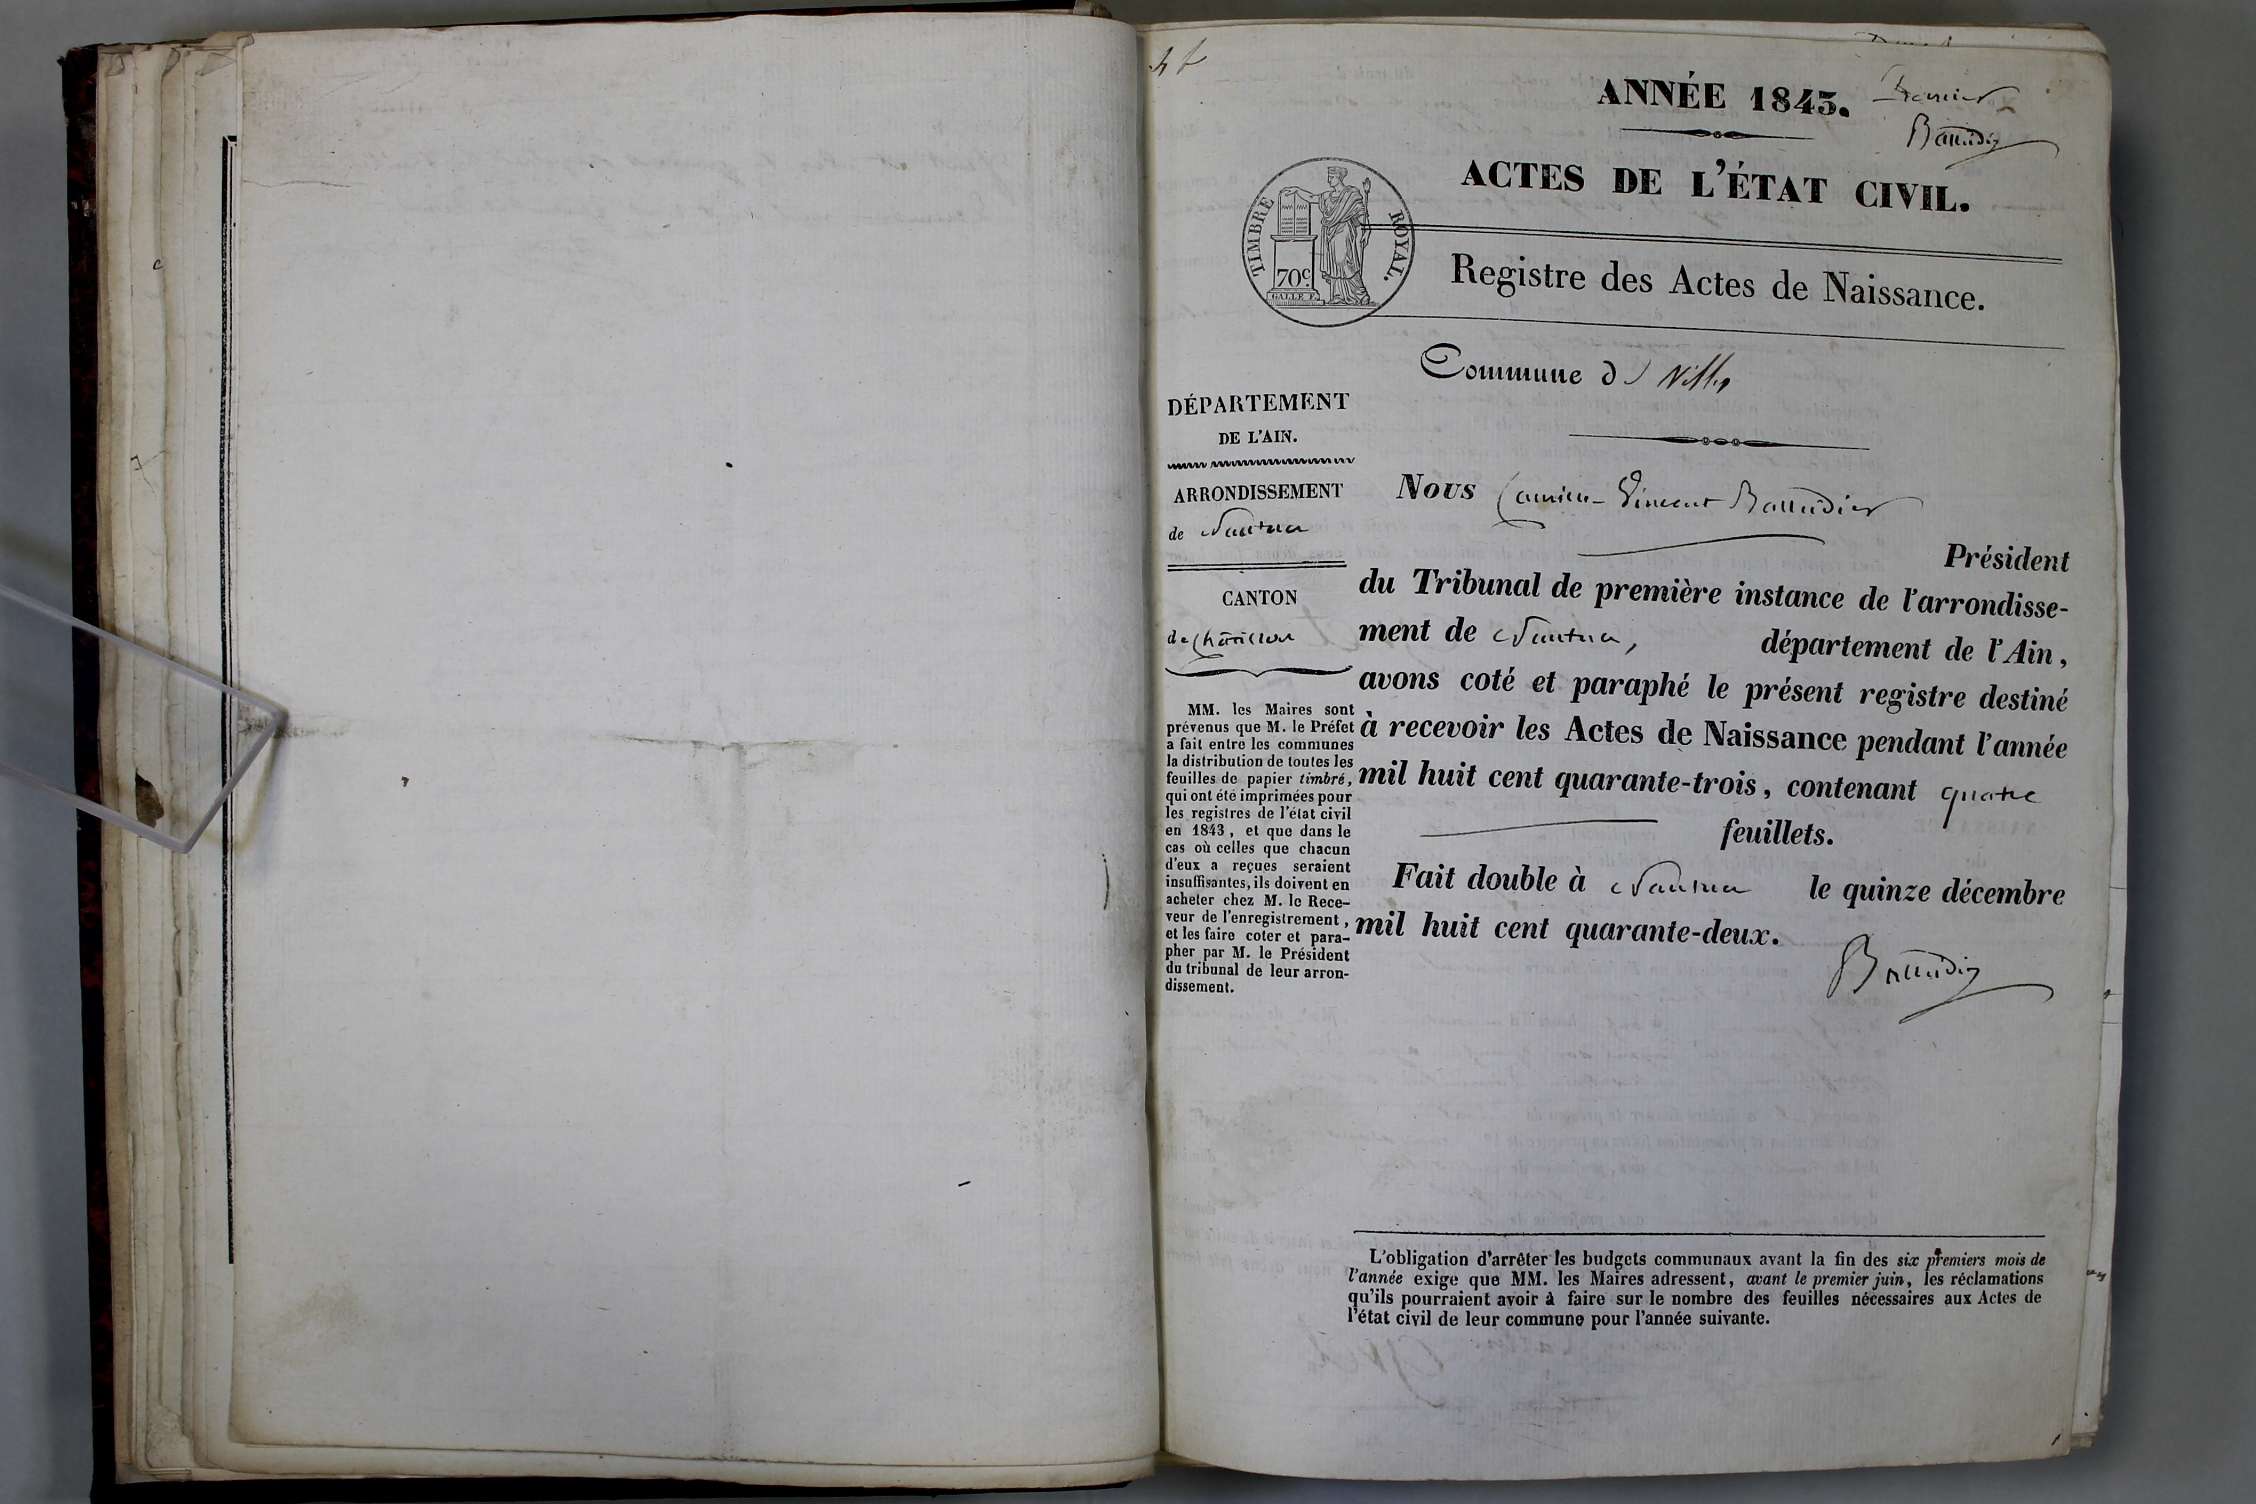 ANNÉE 1843.
Premier
Baudier
ACTES DE L'ÉTAT CIVIL.
TIMBRE ROYAL.
70c.
GALLE F.
Registre des Actes de Naissance.
Commune de Villes
DÉPARTEMENT
DE L'AIN.
ARRONDISSEMENT
de Nantua
CANTON
de Châtillon
MM. les Maires sont
prévenus que M. le Préfet
a fait entre les communes
la distribution de toutes les
feuilles de papier timbré,
qui ont été imprimées pour
les registres de l'état civil
en 1843, et que dans le
cas où celles que chacun
d'eux a reçues seraient
insuffisantes, ils doivent en
acheter chez M. le Rece-
veur de l'enregistrement,
et les faire coter et para-
pher par M. le Président
du tribunal de leur arron-
dissement.
Nous Vincent
Président
du Tribunal de première instance de l'arrondisse-
ment de Nantua, département de l'Ain,
avons coté et paraphé le présent registre destiné
à recevoir les Actes de Naissance pendant l'année
mil huit cent quarante-trois, contenant quatre
feuillets.
Fait double à Nantua le quinze décembre
mil huit cent quarante-deux.
L'obligation d'arrêter les budgets communaux avant la fin des six premiers mois de
l'année exige que MM. les Maires adressent, avant le premier juin, les réclamations
qu'ils pourraient avoir à faire sur le nombre des feuilles nécessaires aux Actes de
l'état civil de leur commune pour l'année suivante.